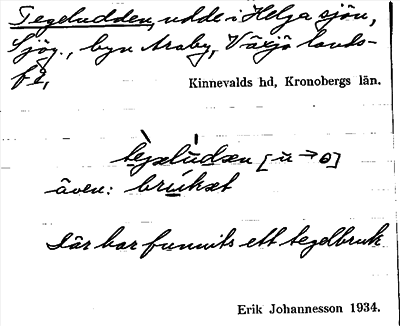 Tegeludden, udde i Helga sjön,
Sjög., byn Araby, Växjö lands-
fs,
Kinnevalds hd, Kronobergs län.
även: brúkət
där har funnits ett tegelbruk
Erik Johannesson 1934.